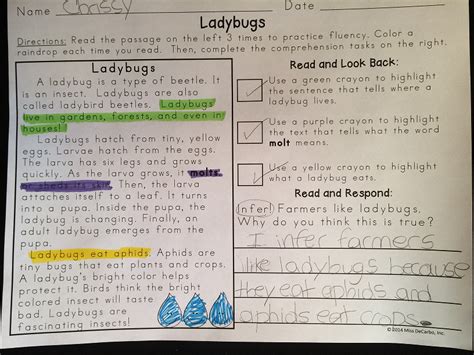 Name Chrissy Date
Ladybugs
Directions: Read the passage on the left 3 times to practice fluency. Color a
raindrop each time you read. Then, complete the comprehension tasks on the right.
Ladybugs
A ladybug is a type of beetle. It
is an insect. Ladybugs are also
called ladybird beetles. Ladybugs
live in gardens, forests, and even in
houses!
Ladybugs hatch from tiny, yellow
eggs. Larvae hatch from the eggs.
The larva has six legs and grows
quickly. As the larva grows, it molts
or sheds its skin. Then, the larva
attaches itself to a leaf. It turns
into a pupa. Inside the pupa, the
ladybug is changing. Finally, an
adult ladybug emerges from the
pupa.
Ladybugs eat aphids. Aphids are
tiny bugs that eat plants and crops.
A ladybug's bright color helps
protect it. Birds think the bright
colored insect will taste
bad. Ladybugs are
fascinating insects!
Read and Look Back:
Use a green crayon to highlight
the sentence that tells where a
ladybug lives.
Use a purple crayon to highlight
the text that tells what the word
molt means.
Use a yellow crayon to highlight
what a ladybug eats.
Read and Respond:
Infer! Farmers like ladybugs.
Why do you think this is true?
I infer farmers
like ladybugs because
they eat aphids and
aphids eat crops.
©2014 Miss DeCarbo, Inc.